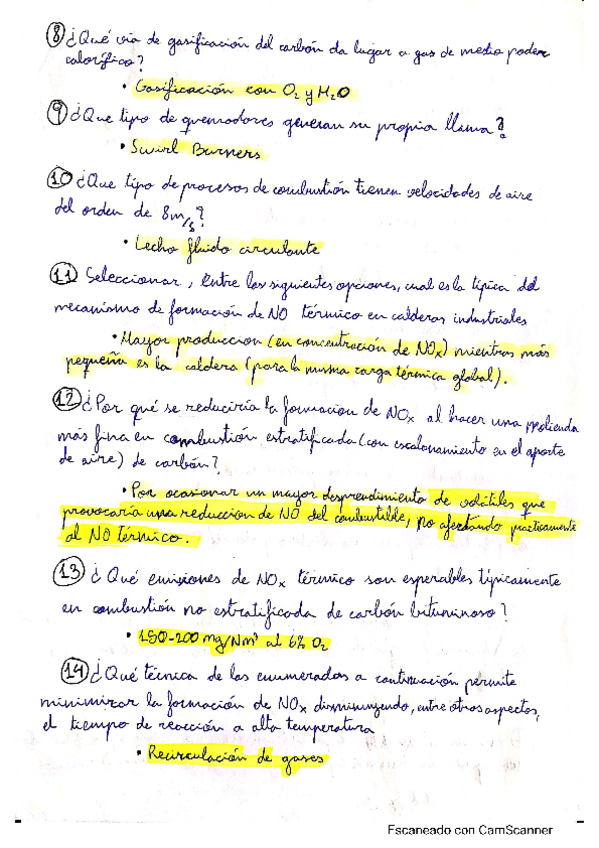 ⑧ ¿Qué vía de gasificación del carbón da lugar a gas de medio poder
calorífico?
• Gasificación con O₂ y H₂O
⑨ ¿Que tipo de quemadores generan su propia llama?
• Swirl Burners
⑩ ¿Que tipo de procesos de combustión tienen velocidades de aire
del orden de 8m/s?
• Lecho fluido circulante
⑪ Seleccionar, entre las siguientes opciones, cual es la típica del
mecanismo de formación de NO térmico en calderas industriales
• Mayor produccion (en concentración de NOx) mientras más
pequeña es la caldera (para la misma carga térmica global).
⑫ ¿Por qué se reduciría la formacion de NOx al hacer una molienda
más fina en combustión estratificada (con escalonamiento en el aporte
de aire) de carbón?
• Por ocasionar un mayor desprendimiento de volátiles que
provocaría una reduccion de NO del combustible, no afectando practicamente
al NO térmico.
⑬ ¿Qué emisiones de NOx térmico son esperables típicamente
en combustión no estratificada de carbón bituminoso?
• 150-200 mg/Nm³ al 6% O₂
⑭ ¿Qué técnica de las enumeradas a continuación permite
minimizar la formación de NOx disminuyendo, entre otros aspectos,
el tiempo de reacción a alta temperatura
• Recirculación de gases
Escaneado con CamScanner